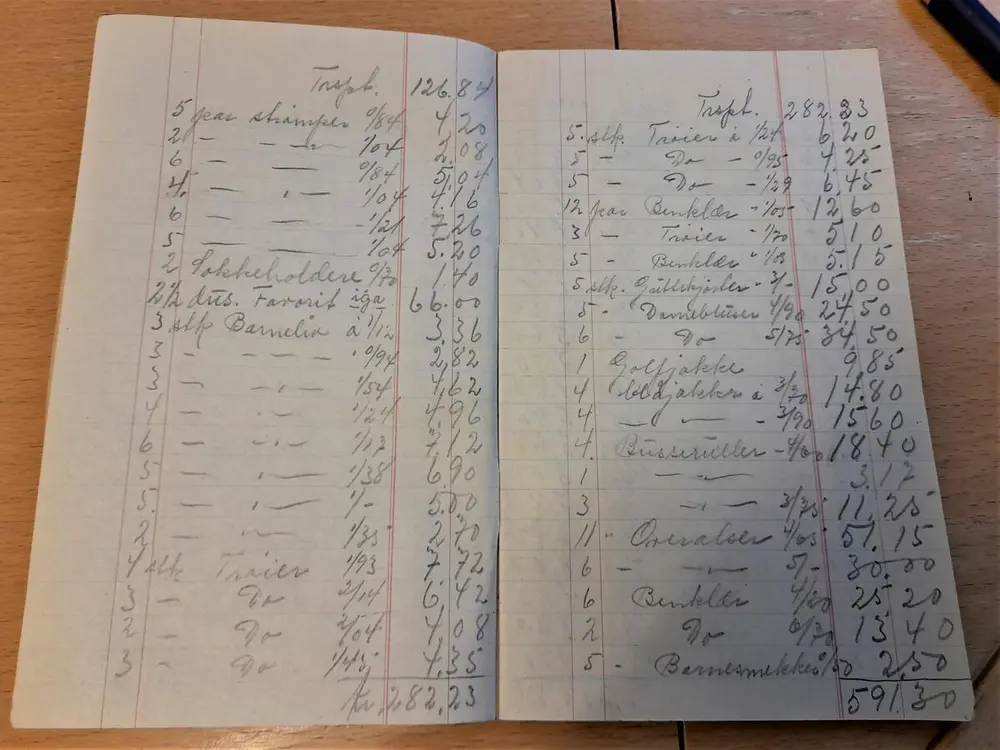 Trspt. 126.84
5 par strømper 0/84 4.20
2 - - - 1/04 2.08
6 - - 0/84 5.04
4. - - 1/04 4.16
6 - - 1/21 7.26
5 - - 1/04 5.20
2 Sokkeholdere 0/70 1.40
2 1/2 dus. Favorit 66.00
3 stk Barneliv á 1/12 3.36
3 - - - 0/94 2.82
3 - - - 1/54 4.62
4 - - - 1/24 4.96
6 - - - 7.12
5 - - - 1/38 6.90
5. - - - 1/- 5.00
2. - - 1/35 2.70
4 stk Trøier 1/93 7.72
3 - Do 2/14 6.42
2 - Do 2/04 4.08
3 - Do 1/45 4.35
Kr. 282.23
Trspt. 282.23
5. stk. Trøier á 1/24 6.20
5 - Do - 0/95 4.25
5 - Do - 1/29 6.45
12 par Benklær - 1/05 12.60
3 - Trøier - 1/70 5.10
5 - Benklær - 1/03 5.15
5 stk. - 3/- 15.00
5 - Damebluser 4/90 24.50
6 - Do 5/75 34.50
1 Golfjakke 9.85
4 á 3/70 14.80
4 - - - 3/90 15.60
4. Busseruller - 4/60 18.40
1 - 3.17
3 - 3/75 11.25
11 - Overalser 4/65 51.15
6 - - 5/- 30.00
6 Benklær 4/20 25.20
2 Do 6/70 13.40
5 - Barnesmekker 0/50 2.50
591.30